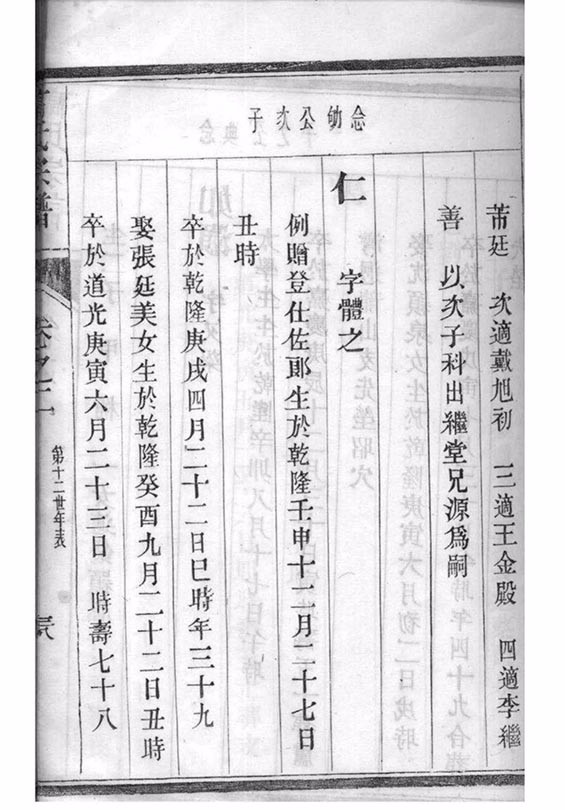 念勄公次子
芾廷 次適戴旭初 三適王金殿 四適李繼
善 以次子科出繼堂兄源為嗣
仁 字體之
例贈登仕佐郎生於乾隆壬申十二月二十七日
丑時
卒於乾隆庚戌四月二十二日巳時年三十九
娶張廷美女生於乾隆癸酉九月二十二日丑時
卒於道光庚寅六月二十三日 時壽七十八
氏宗譜
卷之二
第十二世年表